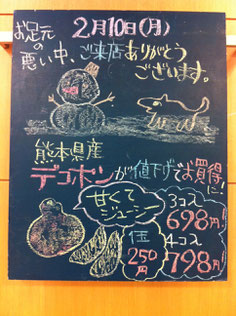 2月10日(月)
お足元の悪い中、ご来店ありがとうございます。
熊本県産
デコポンが値下げでお買得に!
甘くてジューシー
3コ入
698円!
1玉
250円
4コ入
798円!